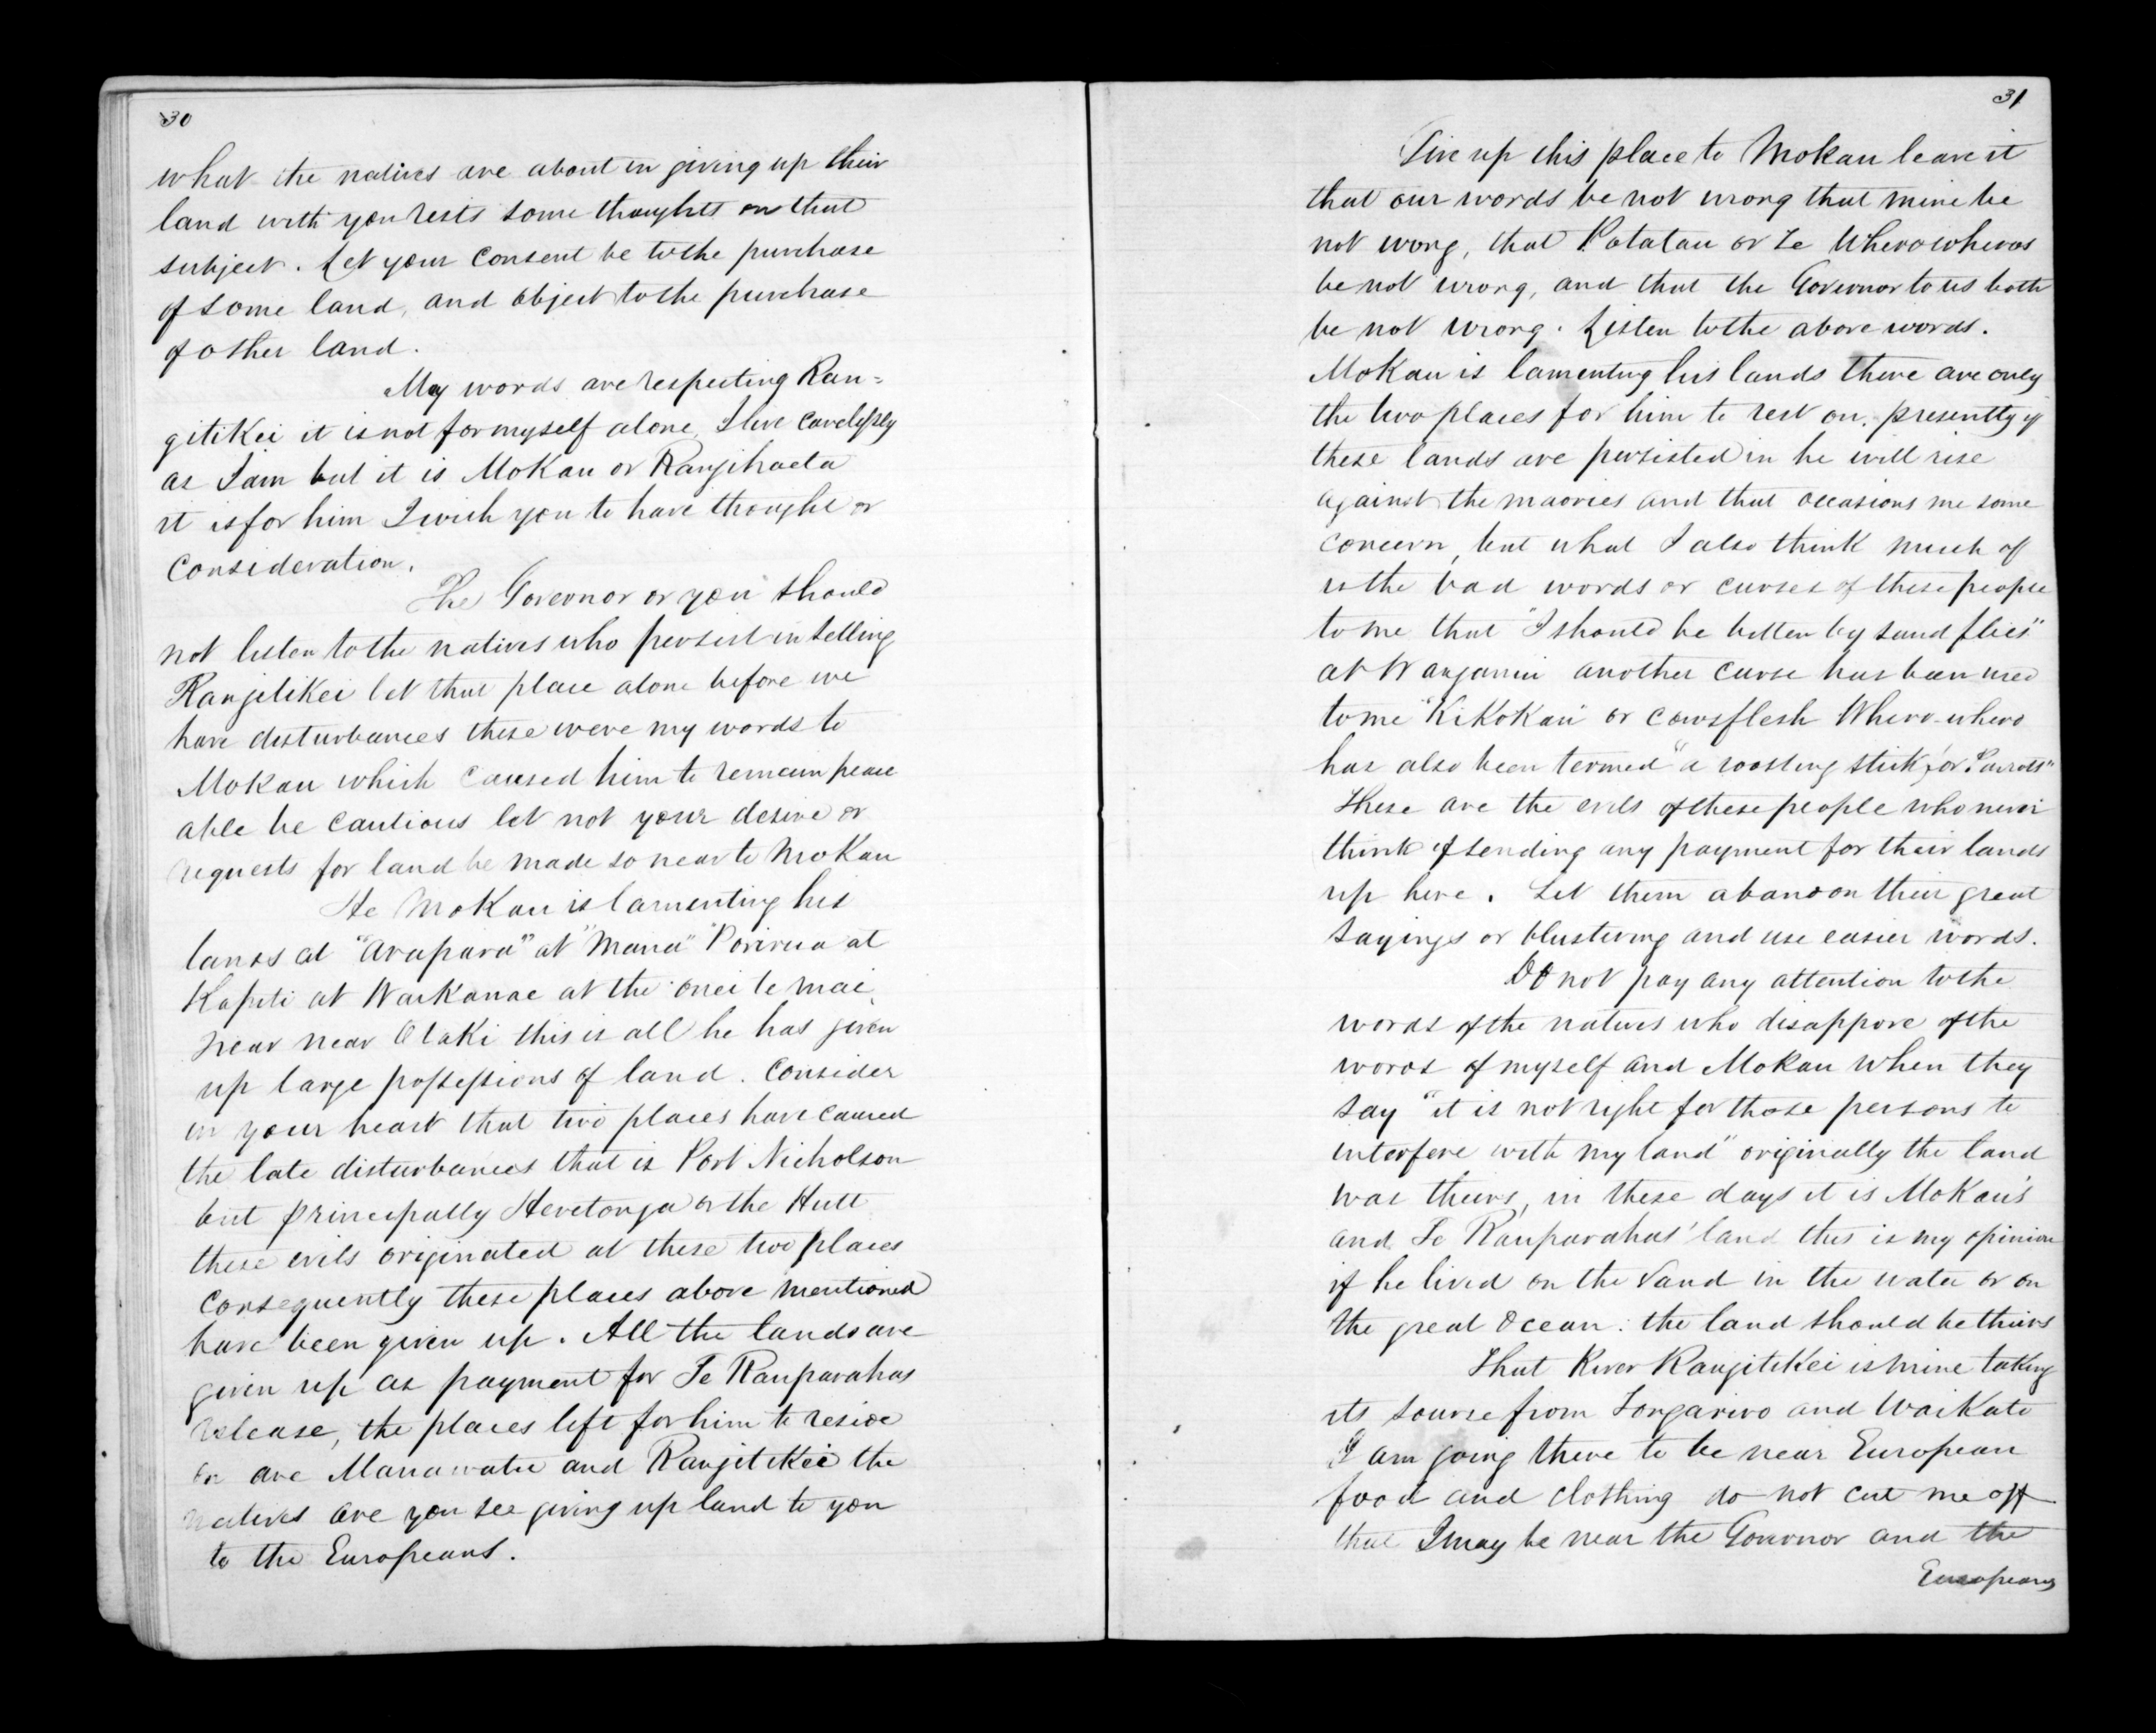 30
what the natives are about in giving up their
land with you rests some thoughts on that
subject. Let your consent be to the purchase
of some land, and object to the purchase
of other land.
My words are respecting Ran=
gitikei it is not for myself alone, I live carelessly
as I am but it is Mokau or Rangihaeta
it is for him I wish you to have thought or
consideration.
The Governor or you should
not listen to the natives who persist in selling
Rangitikei let that place alone before we
have disturbances these were my words to
Mokau which caused him to remain peace
able be cautious let not your desire or
requests for land be made so near to Mokau
He Mokau is lamenting his
lands at "Arapara" at "Mana" "Porirua at
Kapiti at Waikanae at the onei te mai,
near near Otaki this is all he has given
up large possessions of land. Consider
in your heart that two places have caused
the late disturbances that is Port Nicholson
but principally Heretonga or the Hutt
these evils originated at these two places
consequently these places above mentioned
have been given up. All the lands are
given up as payment for Te Rauparahas
release, the places left for him to reside
on are Manawatu and Rangitikei the
natives are you see giving up land to you
to the Europeans.
31
Give up this place to Mokau leave it
that our words be not wrong that mine be
not wrong, that Potatau or Te Wherowheros
be not wrong, and that the Governor to us both
be not wrong. Listen to the above words.
Mokau is lamenting his lands there are only
the two places for him to rest on. presently if
these lands are persisted in he will rise
against the maories and that occasions me some
concern, but what I also think much of
is the bad words or curses of these people
to me that "I should be bitten by sand flies"
at Wanganui another curse has been used
to me "Kikokau" or cowsflesh Whero-whero
has also been termed "a roasting stick for Parrots"
These are the evils of these people who never
think of sending any payment for their lands
up here. Let them abandon their great
sayings or blustering and use easier words.
Do not pay any attention to the
words of the natives who disappore of the
words of myself and Mokau when they
say "it is not right for those persons to
interfere with my land" originally the land
was theirs, in these days it is Mokau's
and Te Rauparahas' land this is my opinion
if he lived on the sand in the water or on
the great Ocean: the land should be theirs
That River Rangitikei is mine taking
its sourse from Tongariro and Waikato
I am going there to be near European
food and clothing do not cut me off
that I may be near the Governor and the
Europeans